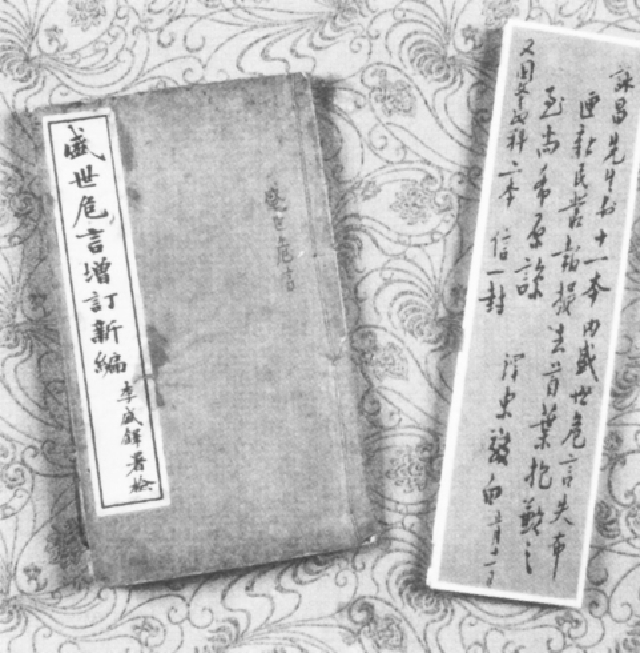 盛世危言增訂新編
李盛鐸署檢
盛世危言
詠昌先生书十一本內盛世危言失布
匣新民叢報損去首葉抱歉之
至尚希原諒
澤東敬白 正月十一日
又国文教科二本 信一封